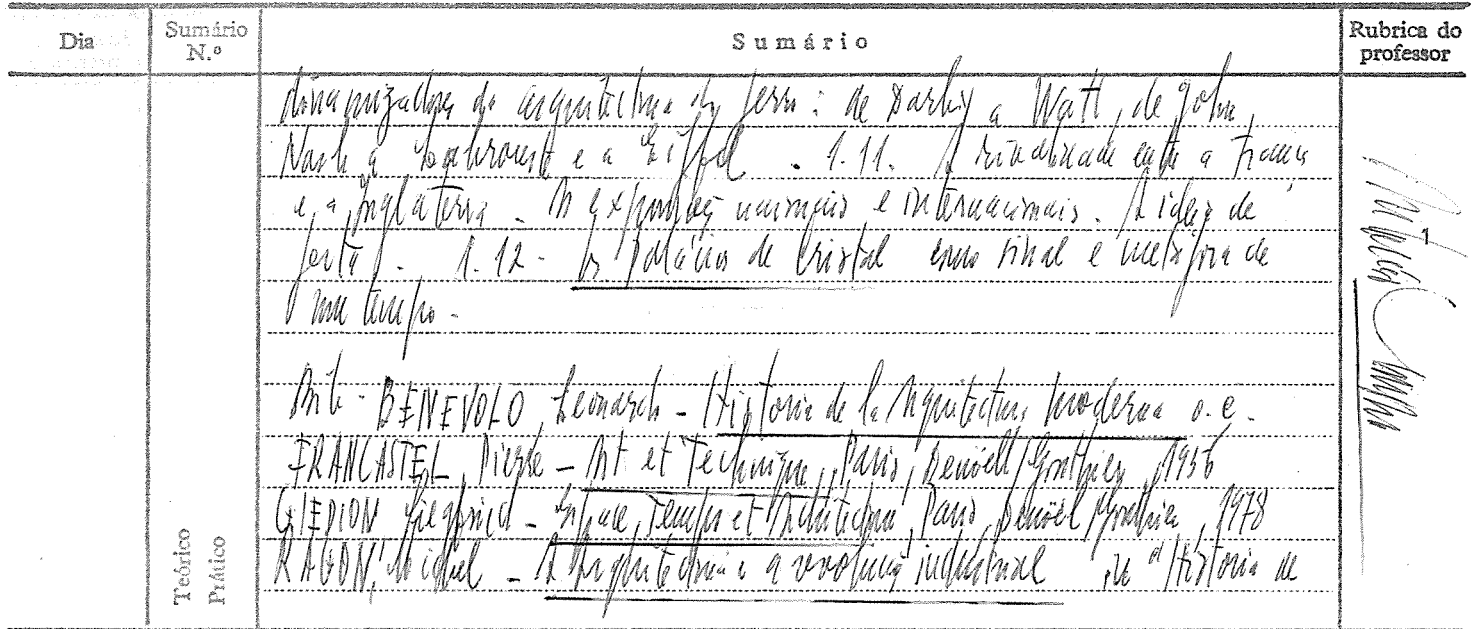 Dia Sumário N.º Sumário Rubrica do professor
dinamizadores da arquitectura do ferro: de Darby a Watt, de John
Nash a Labrouste e a Eiffel. 1.11. A rivalidade entre a França
e a Inglaterra - As exposições nacionais e internacionais. A ideia de
festa. 1.12 - Os palácios de cristal como sinal e metáfora de
um tempo -
Bib - BENEVOLO Leonardo - Historia de la Arquitectura Moderna o.c.
FRANCASTEL, Pierre - Art et Technique, Paris, Denoël/Gonthier, 1956
GIEDION Siegfried - Espace, Temps et Architecture, Paris, Denoël/Gonthier, 1978
RAGON, Michel - A Arquitectura e a revolução industrial in "História de
Teórico
Prático
1